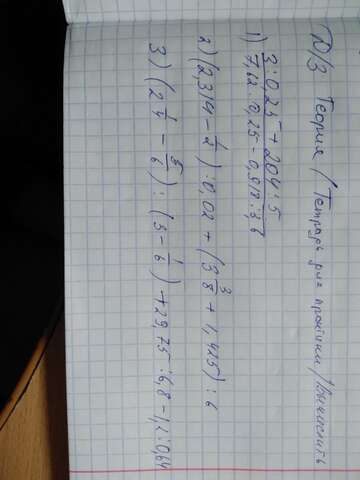 Д/З Теория / Тетрадь для практики / Вычислить
1) 3:0,25 + 204:5
7,62:0,25 - 0,918:3,6
2) (2,314 - 1/2):0,02 + (3 3/8 + 1,425):6
3) (2 1/4 - 5/6):(3 - 1/6) + 29,75:6,8 - 1,2:0,64